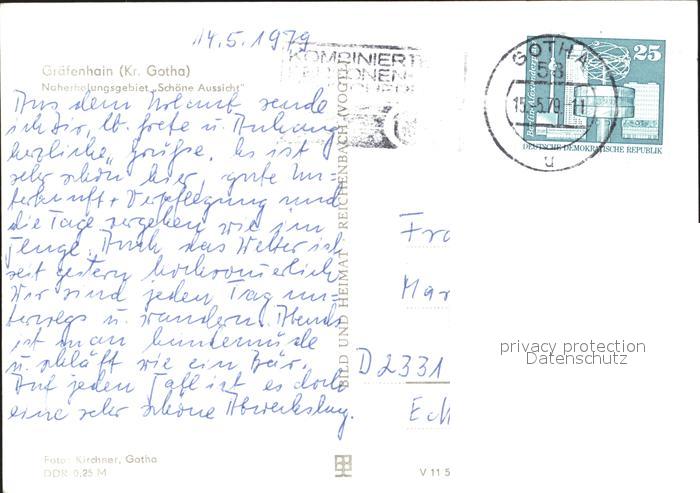 14.5.1979
Gräfenhain (Kr. Gotha)
Naherholungsgebiet "Schöne Aussicht"
Aus dem Urlaub sende
ich Dir, lb. Grete u. Anhang
herzliche Grüße. Es ist
sehr schön hier, gute Un=
terkunft + Verpflegung und
die Tage vergehen wie im
Fluge. Auch das Wetter ist
seit gestern hochsommerlich
Wir sind jeden Tag un=
terwegs u. wandern. Abends
ist man hundemüde
u. schläft wie ein Bär.
Auf jeden Fall ist es doch
eine sehr schöne Abwechslung.
Foto: Kirchner, Gotha
DDR 0,25 M
BILD UND HEIMAT REICHENBACH (VOGTL
V 11 5
KOMBINIERT
GOTHA
58
15.-5.79.-11
u
25
DEUTSCHE DEMOKRATISCHE REPUBLIK
Fra
Mar
D 2331
Eck
privacy protection
Datenschutz